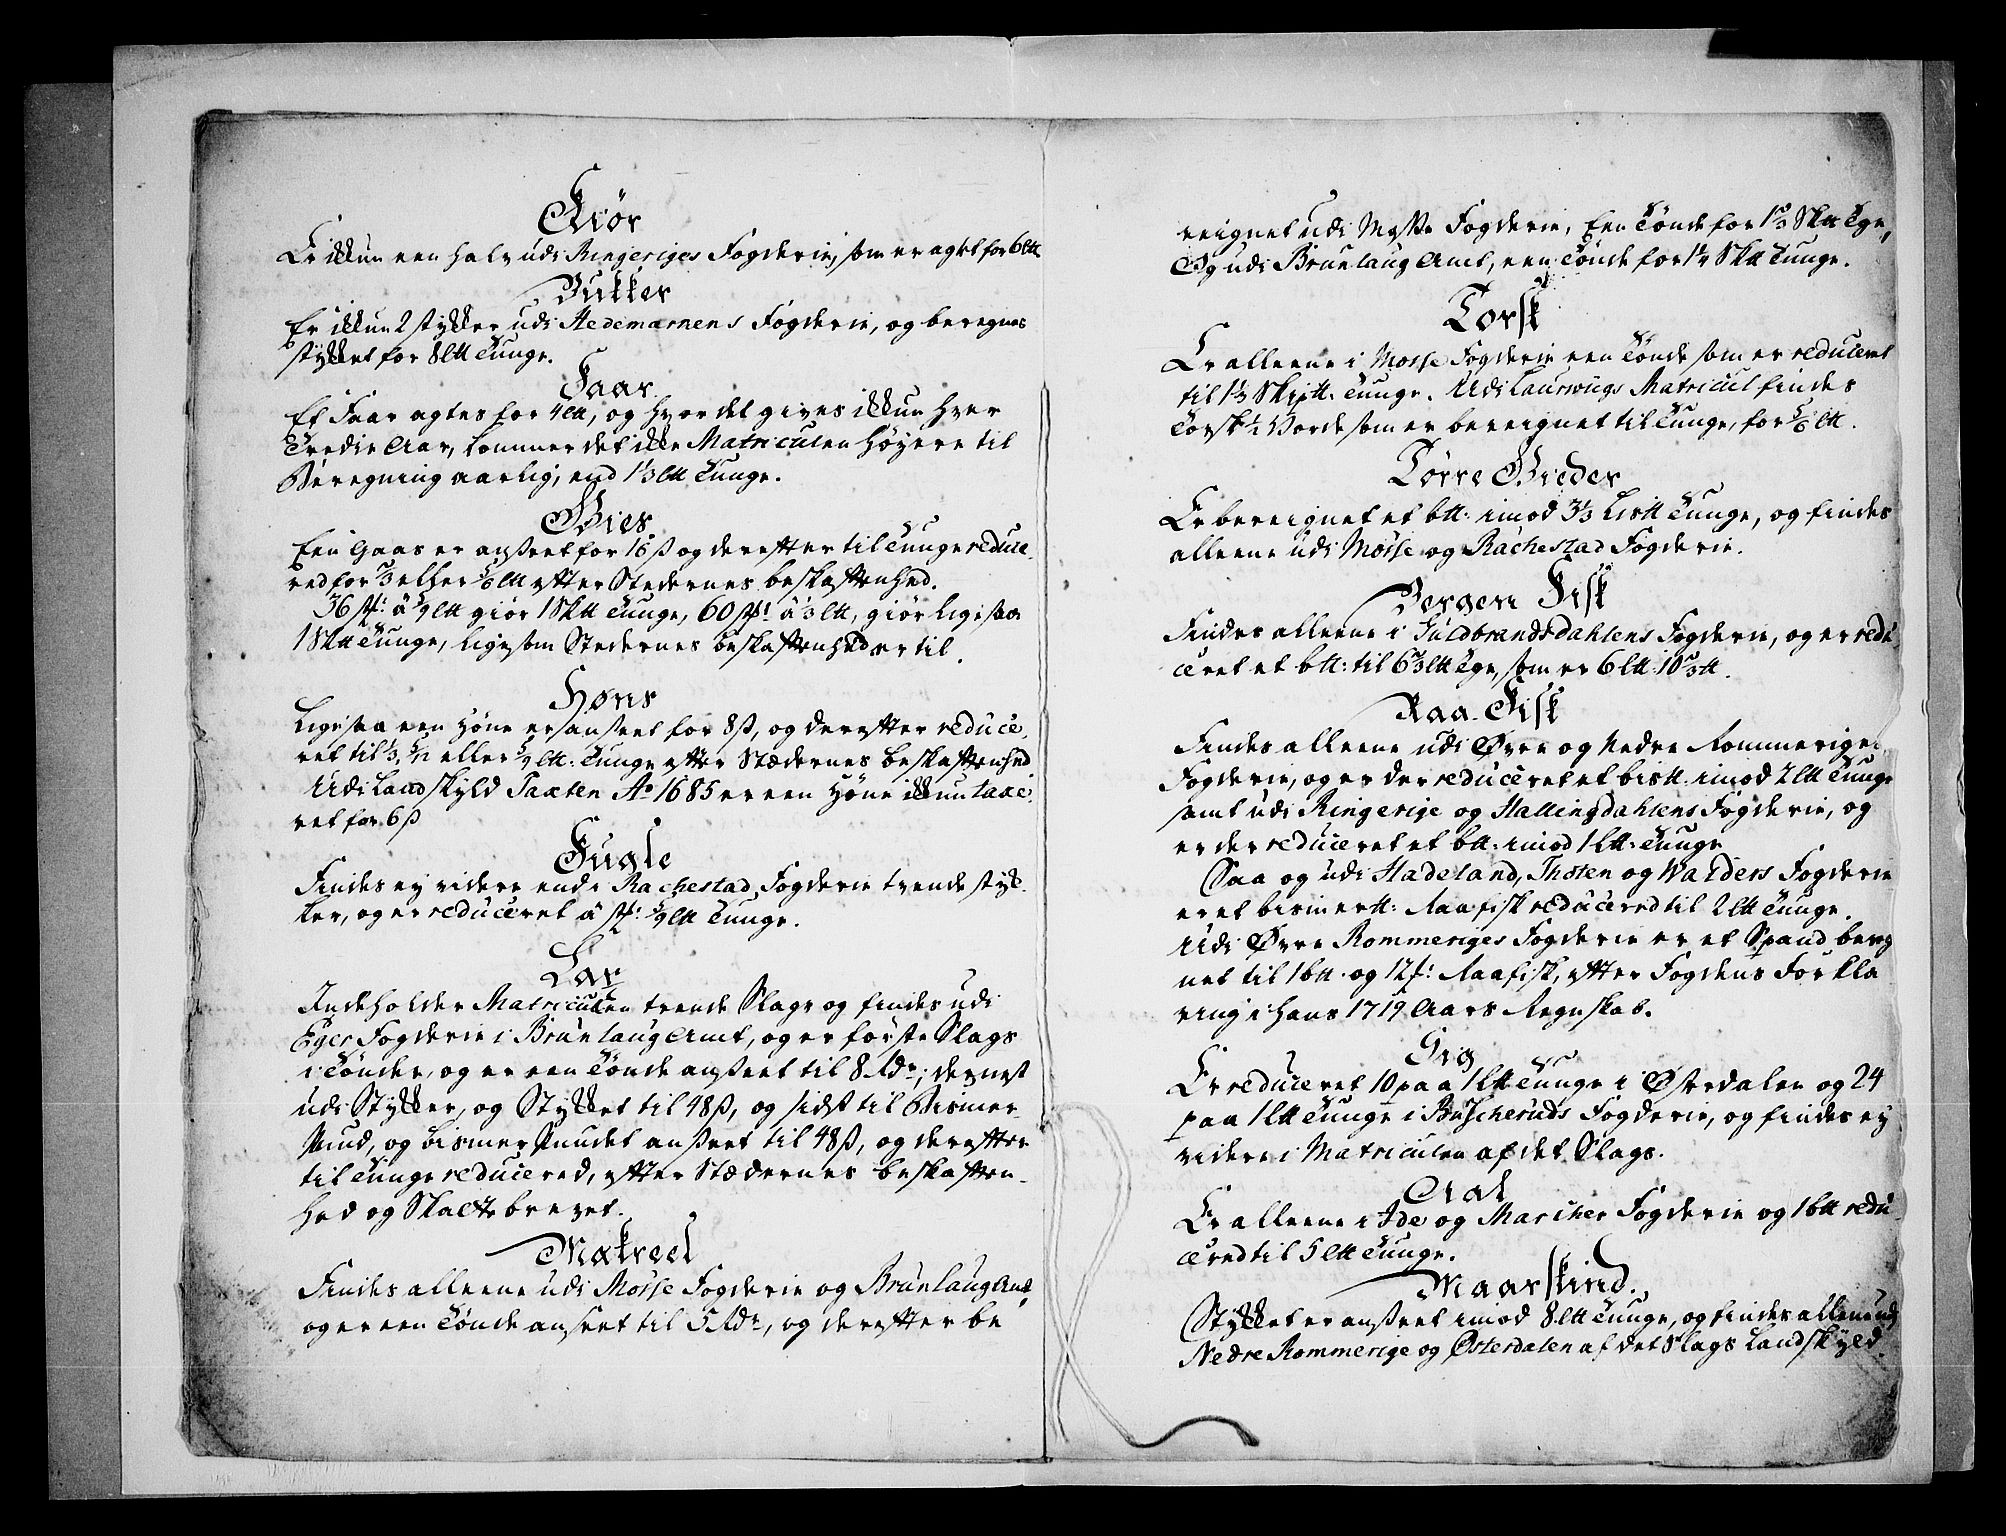 Kiør
Er ikkun een halv udi Ringeriges Fogderie, som er agtet for 6 Ltt
Bukker
Er ikkun 2 stykker udi Hedemarnens Fogderie, og beregnes
stykket for 8 Ltt Tunge.
Faar
Et Faar agtes for 4 Ltt, og hvor det gives ikkun hver
Tredie Aar, kommer det ikke Matriculen høyere til
Beregning aarlig, end 1⅓ Ltt Tunge.
Gies.
Een Gaas er anseet for 16 ß og derefter til Tunge reduce-
red for ⅔ eller Ltt efter Stedernes beskaffenhed.
36 st: à Ltt giør 1 Sktt Tunge, 60 st: à ⅓ Ltt, giør ligesaa
1 Sktt Tunge, ligesom Stedernes beskaffenhed er til.
Høns
Ligesaa een Høne er anseet for 8 ß, og derefter reduce-
ret til ⅓, 5/12 eller Ltt: Tunge efter Stædernes beskaffenhed
Udi Landskyld Taxten Ao 1685 er een Høne ikkun taxe-
ret for 6 ß
Fugle
Findes ey videre end i Rachestad Fogderie trende styk-
ker, og er reduceret à st: Ltt Tunge.
Lax
Indeholder Matriculen trende Slags og findes udi
Eger Fogderie i Brunlaug Amt, og er første Slags
i Tønder, og er een Tønde anseet til 8 Rdr; dernest
udi Stykker, og Stykket til 48 ß, og sidst til Bismer
Pund, og bismer Pundet anseet til 48 ß, og derefter
til Tunge reducered, efter Stædernes beskaffen-
hed og Skattebrevet.
Makreel
Findes alleene udi Mosse Fogderie og Brunlaug Amt,
og er een Tønde anseet til 5 Rdr, og derefter be
reignet udi Mosse Fogderie, Een Tønde for 1⅔ Sktt Tge,
Og udi Brunlaug Amt, een Tønde for 1¼ Sktt Tunge.
Torsk
Er alleene i Mosse Fogderie een Tønde som er reduceret
til 1⅓ Skiptt: Tunge. Udi Laurwiigs Matricul findes
Torsk ½ Vorde som er bereignet til Tunge, for 5/6 Ltt.
Tørre Gieder
Er bereignet et btt: imod 3⅓ Listt Tunge, og findes
alleene udi Mosse og Rachestad Fogderie.
Bergen Fisk
Findes alleene i Guldbrandsdahlens Fogderie, og er redu-
ceret et btt: til 6⅔ Ltt Tge, som er 6 Ltt. 10⅔ tt.
Raa-Fisk
Findes alleene udi Øvre og Nedre Rommeriges
Fogderie, og er der reduceret et bistt: imod 2 Ltt Tunge
samt udi Ringerige og Hallingdahlens Fogderie, og
er der reduceret et btt: imod 1 Ltt: Tunge
Saa og udi Hadeland, Thoten og Walders Fogderie
er et bismertt: Raafisk reducered til 2 Ltt Tunge.
Udi Øvre Rommeriges Fogderie er et Spand bereg
net til 1 btt. og 12 tt: Raafisk, efter Fogdens Forkla
ring i hans 1719 Aars Regnskab.
Giæ
Er reduceret 10 paa 1 Ltt Tunge i Østerdalen og 24
paa 1 Ltt Tunge i Buscheruds Fogderie, og findes ey
videre i Matriculen af det Slags.
Aal
Er alleene i Ide og Marcher Fogderie og 1 btt redu-
cered til 5 Ltt Tunge.
Maarskind.
Stykket er anseet imod 8 Ltt Tunge, og findes alleene udi
Nedre Rommerige og Østerdalen af det Slags Landskyld.